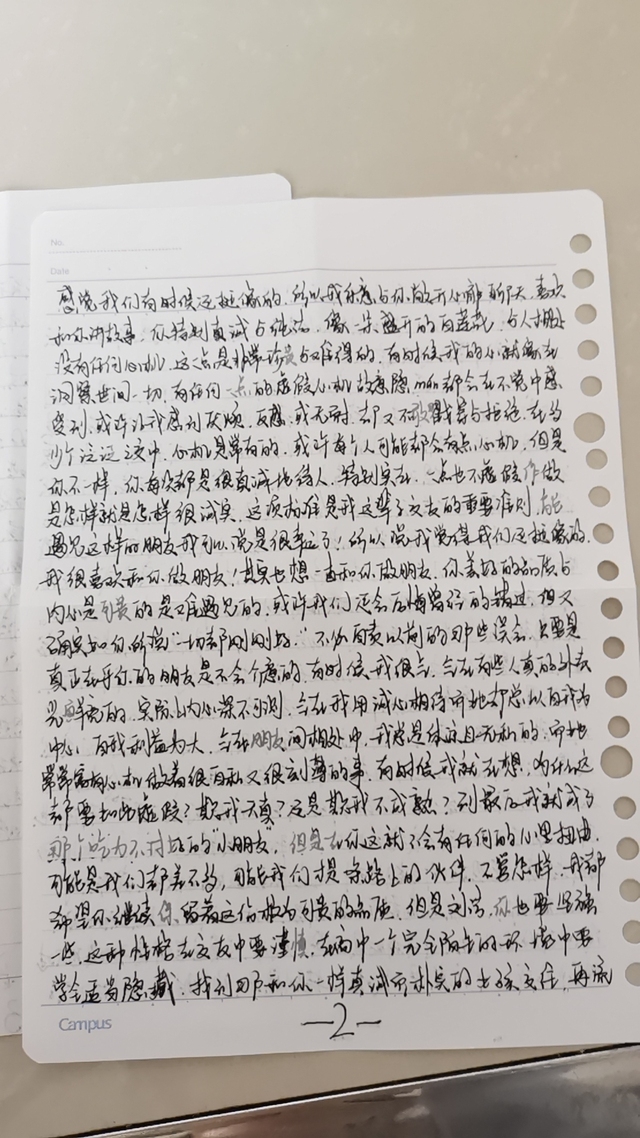 No.
Date
感觉我们有时候还挺像的,所以我乐意与你敞开心扉聊天,喜欢
和你讲故事,你特别真诚与纯洁,像一朵盛开的白莲花,与人相处
没有任何心机,这一点是非常珍贵与难得的,有时候我的心就像在
洞察世间一切,有任何一点的虚假心机故意隐瞒都会在不觉中感
受到,或许让我感到厌烦,反感,或无耐,却又不敢戳穿与拒绝,在为
中,心机是常有的,或许每个人可能都会有点心机,但是
你不一样,你每次都是很真诚地待人,特别实在,一点也不虚假作做
是怎样就是怎样很诚实,这项标准是我这辈子交友的重要准则,能
遇见这样的朋友我可以说是很幸运了!所以说我觉得我们还挺像的,
我很喜欢和你做朋友!其实也想一直和你做朋友,你美好的品质与
内心是可贵的是难遇见的,或许我们还会后悔曾经的错过,但又
确实如你所说“一切都刚刚好”不必自责以前的那些误会,只要是
真正在乎你的朋友是不会介意的,有时候我很气,气在有些人真的外表
光鲜亮的,实际上内心深不可测,气在我用诚心相待而她却总以自我为
中心,自我利益为大,气在朋友间相处中,我总是体谅且无私的,而她
常常富有心机做着很自私又很刻薄的事,有时候我就在想,为什么这
都要如此虚假?欺我天真?还是欺我不成熟?到最后我就成了
那个吃力不讨好的“小朋友”,但是在你这就不会有任何的心里扭曲,
可能是我们都差不多,可能我们才是一路上的伙伴,不管怎样,我都
希望你继续保留着这份极为可贵的品质,但是刘 你也要坚强
一些,这种性格在交友中要谨慎,在高中一个完全陌生的环境中要
学会适当隐藏,找到那和你一样真诚而朴实的女孩交往,再流
Campus
—2—